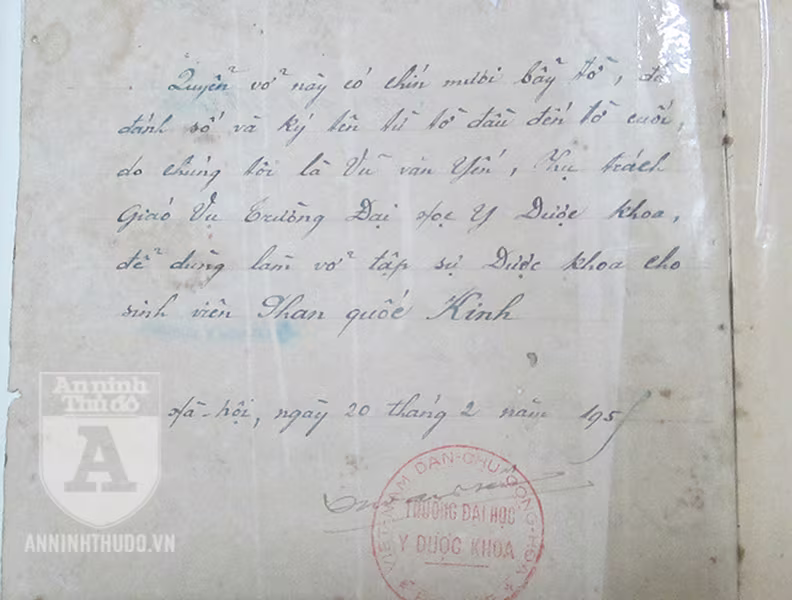 Quyển vở này có chín mươi bẩy tờ, đã
đánh số và ký tên từ tờ đầu đến tờ cuối,
do chúng tôi là Vũ văn Yến, Phụ trách
Giáo Vụ Trường Đại học Y Dược khoa,
để dùng làm vở tập sự Dược khoa cho
sinh viên Phan quốc Kinh
Hà-nội, ngày 20 tháng 2 năm 195
VIỆT-NAM DÂN-CHỦ CỘNG-HÒA
TRƯỜNG ĐẠI HỌC
Y DƯỢC KHOA
An ninh
Thủ đô
A
ANNINHTHUDO.VN